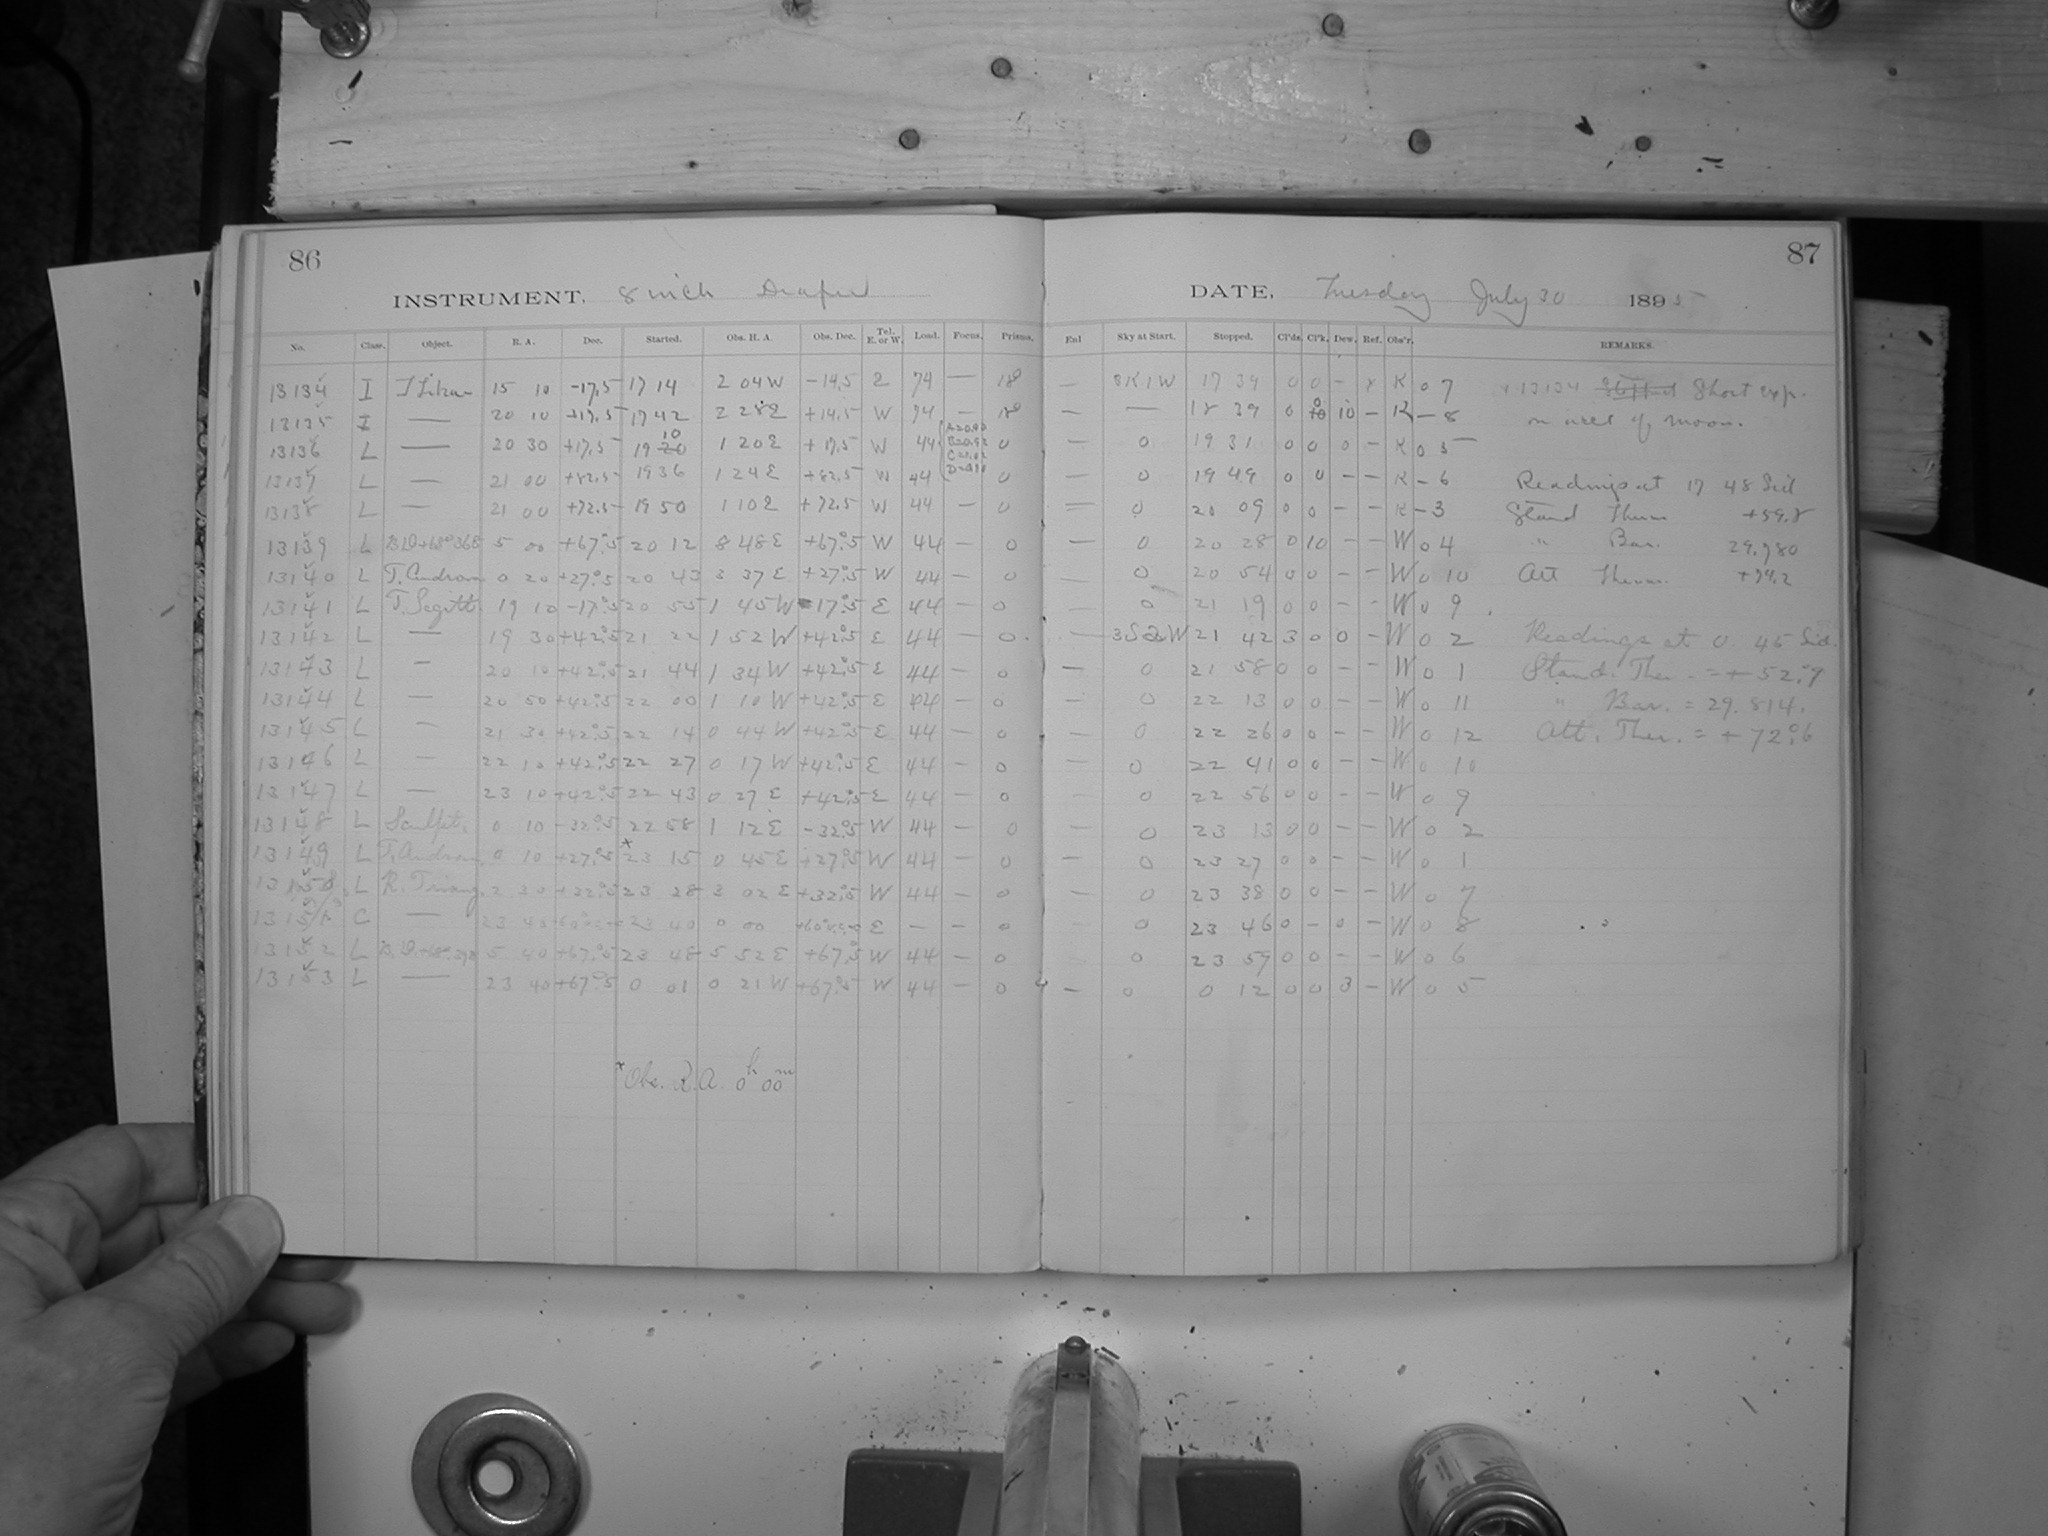 86
INSTRUMENT, 8 inch Draper
No. Class. Object. R. A. Dec. Started. Obs. H. A. Obs. Dec. Tel. E. or W. Load. Focus. Prisms.
13134 I T Librae 15 10 -17,5 17 14 2 04 W -14,5 2 74 — 18
13135 I — 20 10 +17,5 17 42 2 28 E +14,5 W 74 — 18
13136 L — 20 30 +17,5 19 10 1 20 E +17,5 W 44 0
13137 L — 21 00 +82,5 19 36 1 24 E +82,5 W 44 0
13138 L — 21 00 +72,5 19 50 1 10 E +72,5 W 44 — 0
13139 L 5 00 +67°5 20 12 8 48 E +67°5 W 44 — 0
13140 L T. Androm 0 20 +27°5 20 43 3 37 E +27°5 W 44 — 0
13141 L T. Sagitt. 19 10 -17°5 20 55 1 45 W -17°5 E 44 — 0
13142 L — 19 30 +42°5 21 22 1 52 W +42°5 E 44 — 0
13143 L — 20 10 +42°5 21 44 1 34 W +42°5 E 44 — 0
13144 L — 20 50 +42°5 22 00 1 10 W +42°5 E 44 — 0
13145 L — 21 30 +42°5 22 14 0 44 W +42°5 E 44 — 0
13146 L — 22 10 +42°5 22 27 0 17 W +42°5 E 44 — 0
13147 L — 23 10 +42°5 22 43 0 27 E +42°5 E 44 — 0
13148 L Sculpt. 0 10 -32°5 22 58 1 12 E -32°5 W 44 — 0
13149 L T. Androm. 0 10 +27°5 *23 15 0 45 E +27°5 W 44 — 0
13150 L R. Triang. 2 30 +32°5 23 28 3 02 E +32°5 W 44 — 0
13151 C — 23 40 23 40 0 00 E — — 0
13152 L 5 40 +67°5 23 48 5 52 E +67°5 W 44 — 0
13153 L — 23 40 +67°5 0 01 0 21 W +67°5 W 44 — 0
*Obs. R.A. 0h 00m
87
DATE, Tuesday July 30 1895
Enl Sky at Start. Stopped. Cl'ds. Cl'k. Dew. Ref. Obs'r. REMARKS.
— 8K1W 17 39 0 0 - K 0 7 13134 Short exp.
— — 18 39 0 0 10 - K - 8 on acct of moon.
— 0 19 31 0 0 0 - K 0 5
— 0 19 49 0 0 - - K - 6 Readings at 17 48 Sid
— 0 20 09 0 0 - - K - 3 Stand Therm +59,8
— 0 20 28 0 10 - - W 0 4 " Bar. 29.780
— 0 20 54 0 0 - - W 0 10 Att Therm. +74.2
— 0 21 19 0 0 - - W 0 9
— 3S2W 21 42 3 0 0 - W 0 2 Readings at 0 45 Sid.
— 0 21 58 0 0 - - W 0 1 Stand. Ther. = +52°9
— 0 22 13 0 0 - - W 0 11 " Bar. = 29.814.
— 0 22 26 0 0 - - W 0 12 Att. Ther. = +72°6
— 0 22 41 0 0 - - W 0 10
— 0 22 56 0 0 - - W 0 9
— 0 23 13 0 0 - - W 0 2
— 0 23 27 0 0 - - W 0 1
— 0 23 38 0 0 - - W 0 7
— 0 23 46 0 - 0 - W 0 8
— 0 23 59 0 0 - - W 0 6
— 0 0 12 0 0 3 - W 0 5